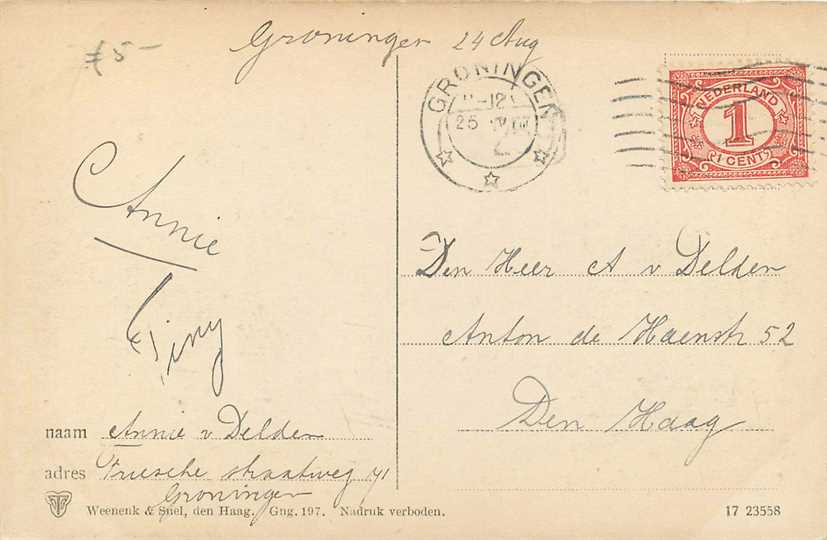 £5-
Groningen 24 Aug
GRONINGEN
-12
25
NEDERLAND
1
1 CENT
Annie
Tiny
Den Heer A v Delden
Anton de Haenstr 52
Den Haag
naam Annie v Delden
adres Friesche straatweg 41
Groningen
Weenenk & Snel, den Haag. Gng. 197. Nadruk verboden.
17 23558